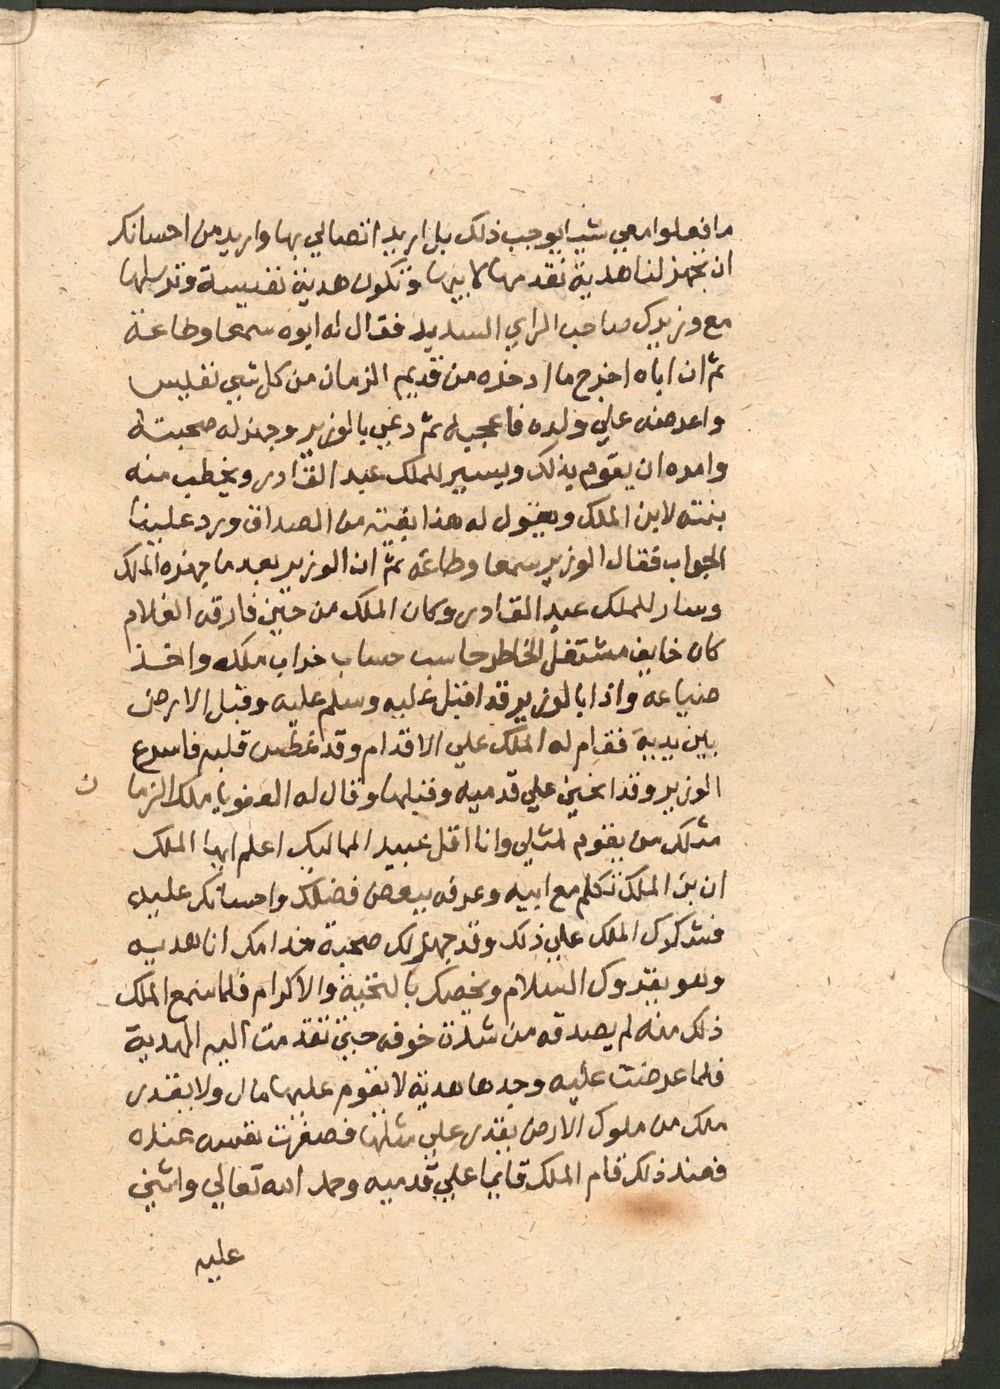 ما فعلوا معي شيا يوجب ذلك بل اريد اتصالي بها واريد من احسانكم
ان تجهز لنا هدية نقدمها لابيها وتكون هدية نفيسة وترسلها
مع وزيرك صاحب الراي السديد فقال له ابوه سمعا وطاعة
ثم ان اباه اخرج ما ادخره من قديم الزمان من كل شي نفيس
واعرضه علي ولده فاعجبه ثم دعي بالوزير وجهزله صحبته
وامره ان يقوم بذلك ويسير للملك عبد القادر ويخطب منه
بنته لابن الملك ويقول له هذا بقية من الصداق ورد علينا
الجواب فقال الوزير سمعا وطاعة ثم ان الوزير بعد ما جهزه الملك
وسار للملك عبد القادر وكان الملك من حين فارقه الغلام
كان خايف مشتغل الخاطر حاسب حساب خراب ملكه واخذ
ضياعه واذا بالوزير قد اقبل عليه وسلم عليه وقبل الارض
بين يديه فقام له الملك علي الاقدام وقد غطس قلبه فاسرع
الوزير وقد انحني علي قدميه وقبلها وقال له العفو يا ملك الزما ن
مثلك من يقوم لمثلي وانا اقل عبيد المماليك اعلم ايها الملك
ان بن الملك تكلم مع ابيه وعرفه ببعض فضلك واحسانكم عليه
فشكرك الملك علي ذلك وقد جهز لك صحبة خدامك انا هدية
وهو يقروك السلام ويخصك بالتحية والاكرام فلما سمع الملك
ذلك منه لم يصدقه من شدة خوفه حتي تقدمت اليه الهدية
فلما عرضت عليه وجدها هدية لا يقوم عليها مال ولا يقدر
ملك من ملوك الارض يقدر علي مثلها فصغرت نفسه عنده
فعند ذلك قام الملك قايما علي قدميه وحمد الله تعالي واثني
عليه